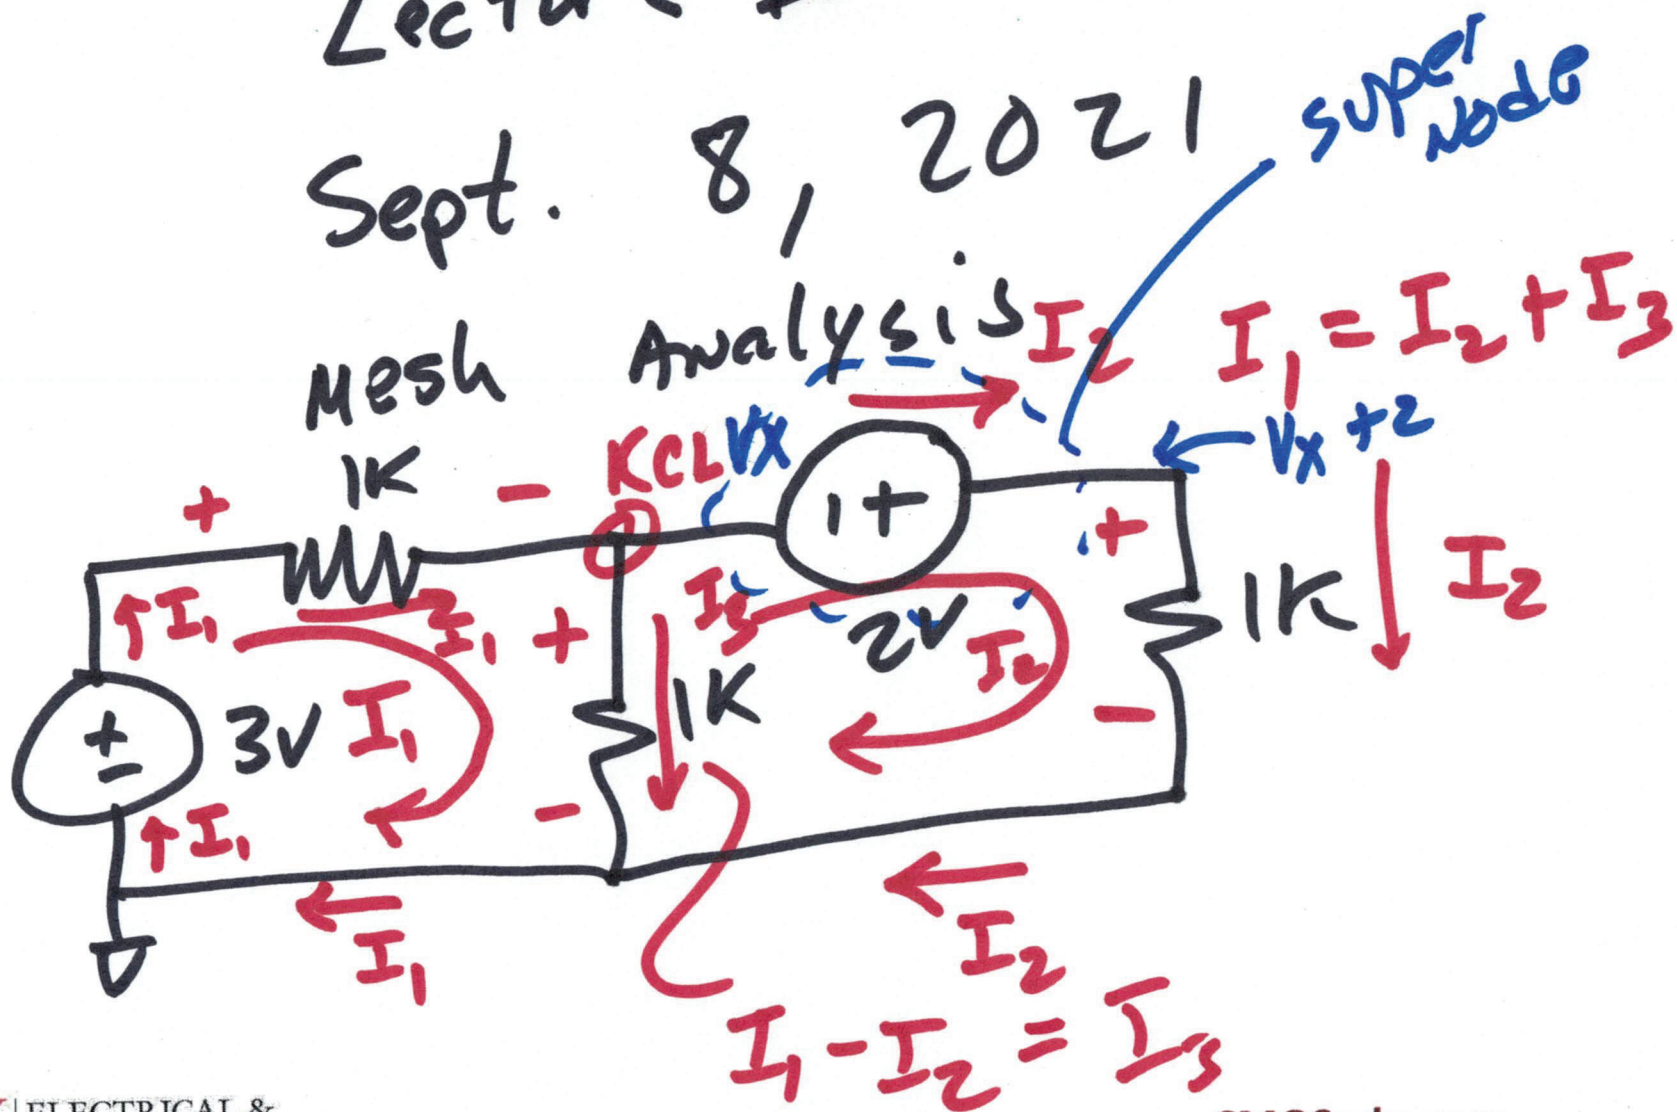 Lecture
Sept. 8, 2021
super
Node
Mesh Analysis
I2
I1 = I2 + I3
1K
+ -
KCL
Vx
Vx + 2
- +
+
↑I1
I1
+
I3
2V
I2
1K
I2
3V
I1
1K
-
↑I1
-
I1
I2
I1 - I2 = I3
ELECTRICAL &